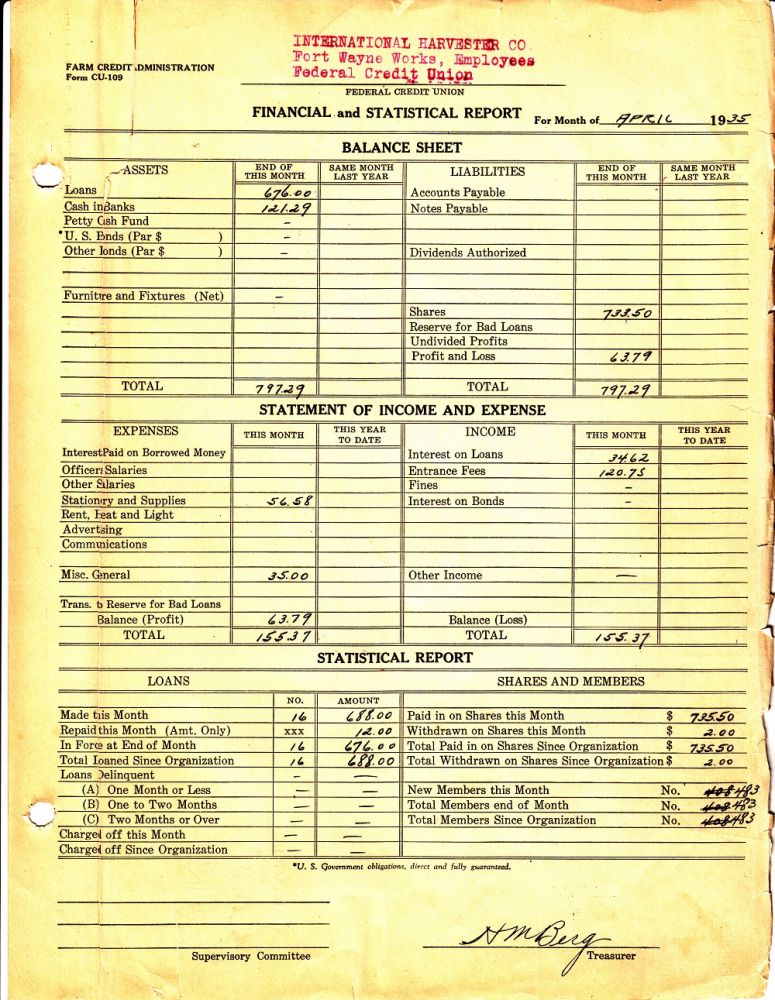 INTERNATIONAL HARVESTER CO.
Fort Wayne Works, Employees
Federal Credit Union
FARM CREDIT ADMINISTRATION
Form CU-109
FEDERAL CREDIT UNION
FINANCIAL and STATISTICAL REPORT For Month of APRIL 1935
BALANCE SHEET
ASSETS END OF THIS MONTH SAME MONTH LAST YEAR LIABILITIES END OF THIS MONTH SAME MONTH LAST YEAR
Loans 676.00 Accounts Payable
Cash in Banks 121.29 Notes Payable
Petty Cash Fund –
*U. S. Bonds (Par $ ) –
Other Bonds (Par $ ) – Dividends Authorized
Furniture and Fixtures (Net) –
Shares 733.50
Reserve for Bad Loans
Undivided Profits
Profit and Loss 63.79
TOTAL 797.29 TOTAL 797.29
STATEMENT OF INCOME AND EXPENSE
EXPENSES THIS MONTH THIS YEAR TO DATE INCOME THIS MONTH THIS YEAR TO DATE
Interest Paid on Borrowed Money Interest on Loans 34.62
Officers Salaries Entrance Fees 120.75
Other Salaries Fines –
Stationery and Supplies 56.58 Interest on Bonds –
Rent, Heat and Light
Advertising
Communications
Misc. General 35.00 Other Income —
Trans. to Reserve for Bad Loans
Balance (Profit) 63.79 Balance (Loss)
TOTAL 155.37 TOTAL 155.37
STATISTICAL REPORT
LOANS SHARES AND MEMBERS
NO. AMOUNT
Made this Month 16 688.00 Paid in on Shares this Month $ 735.50
Repaid this Month (Amt. Only) xxx 12.00 Withdrawn on Shares this Month $ 2.00
In Force at End of Month 16 676.00 Total Paid in on Shares Since Organization $ 735.50
Total Loaned Since Organization 16 688.00 Total Withdrawn on Shares Since Organization $ 2.00
Loans Delinquent – —
(A) One Month or Less — — New Members this Month No. 408 483
(B) One to Two Months — — Total Members end of Month No. 408 483
(C) Two Months or Over — — Total Members Since Organization No. 408 483
Charged off this Month — —
Charged off Since Organization — —
*U. S. Government obligations, direct and fully guaranteed.
HM Berg
Supervisory Committee Treasurer